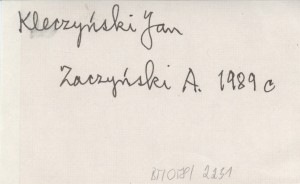 Kleczyński Jan
Zaczyński A. 1989 c
2231